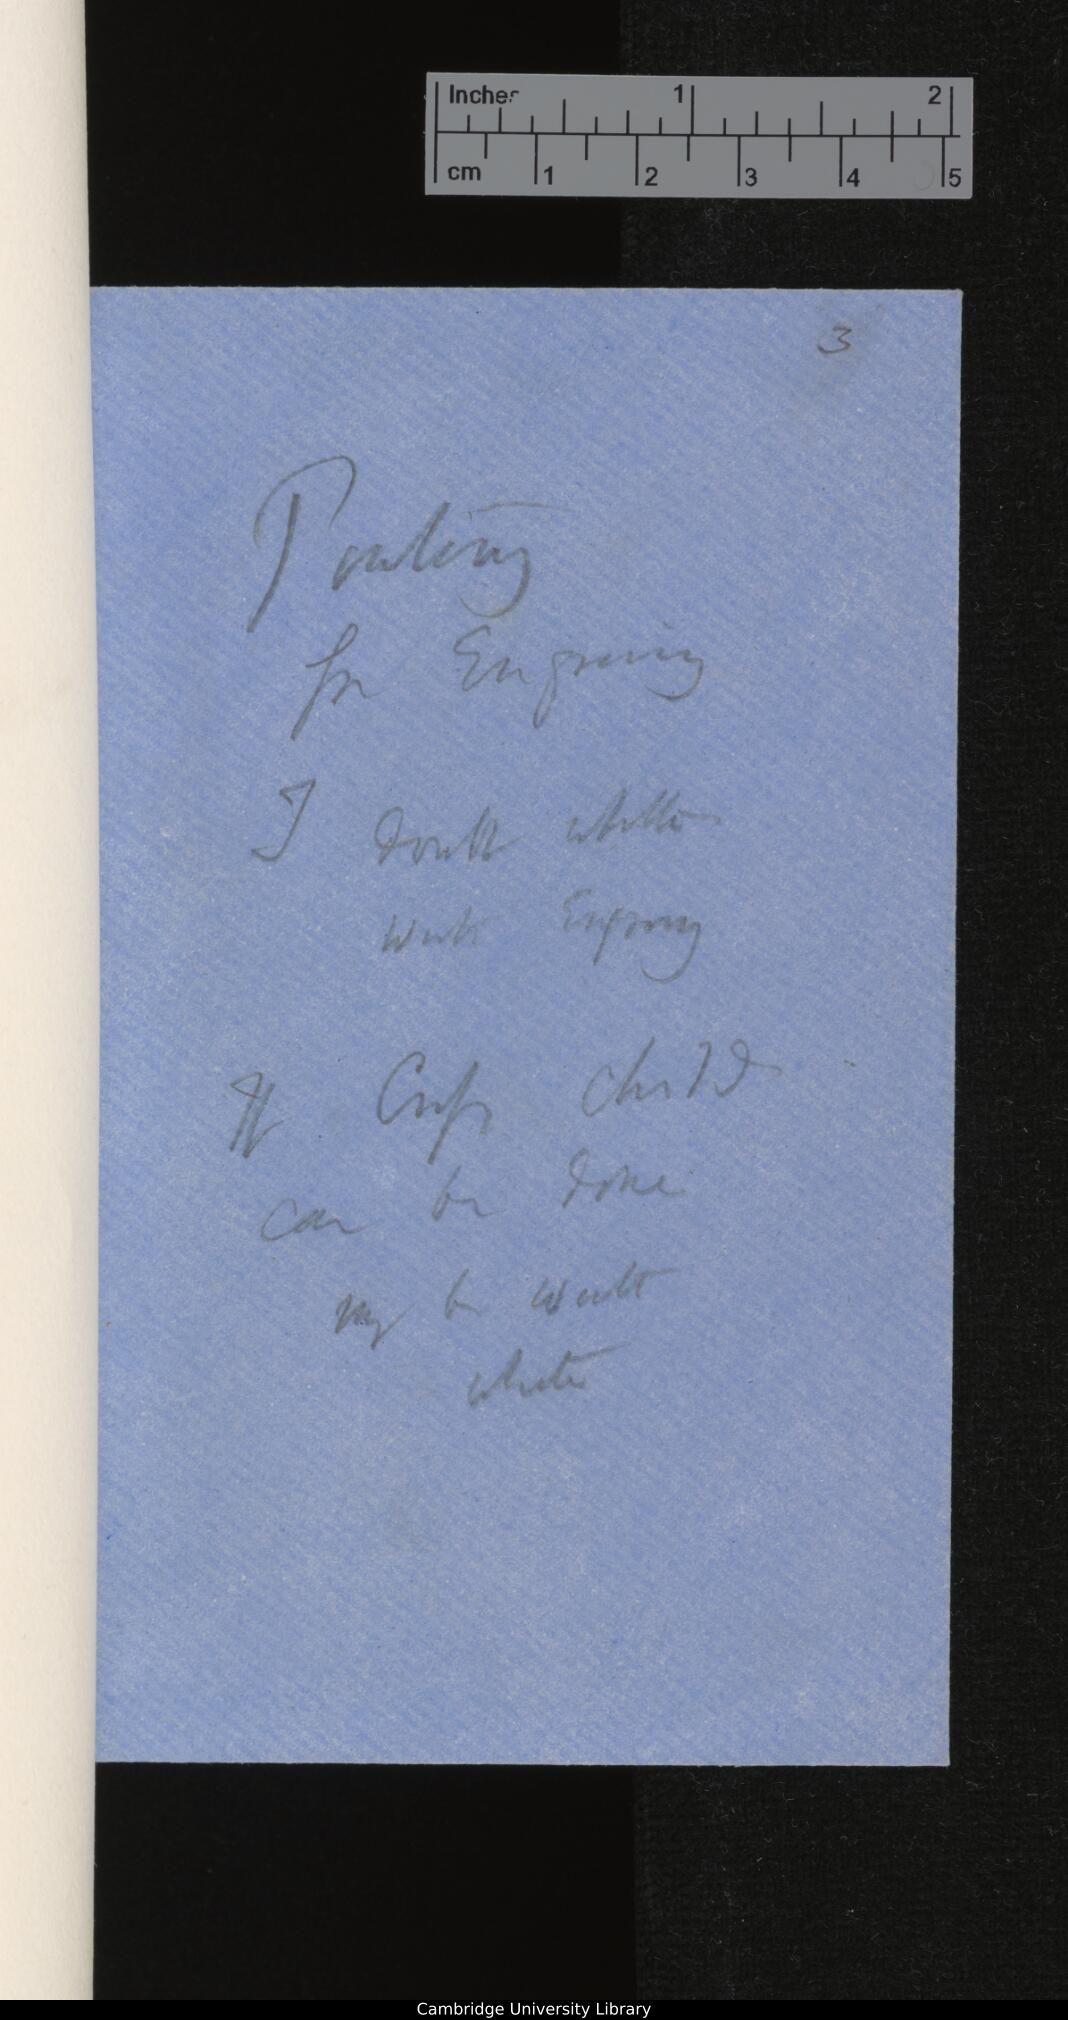 Inches 1 2
cm 1 2 3 4 5
3
Pouting
for Engraving
I doubt whether
worth Engraving
If child
can be done
may be worth
while
Cambridge University Library